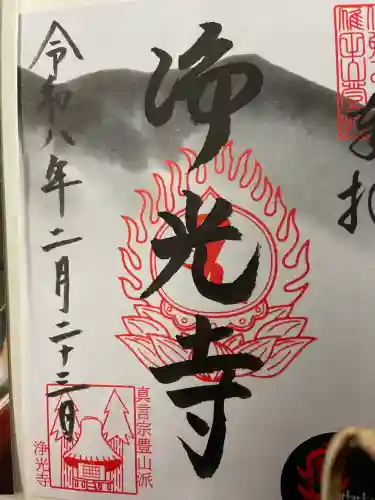 奉拝
浄光寺
令和八年二月二十三日
真言宗豊山派
浄光寺